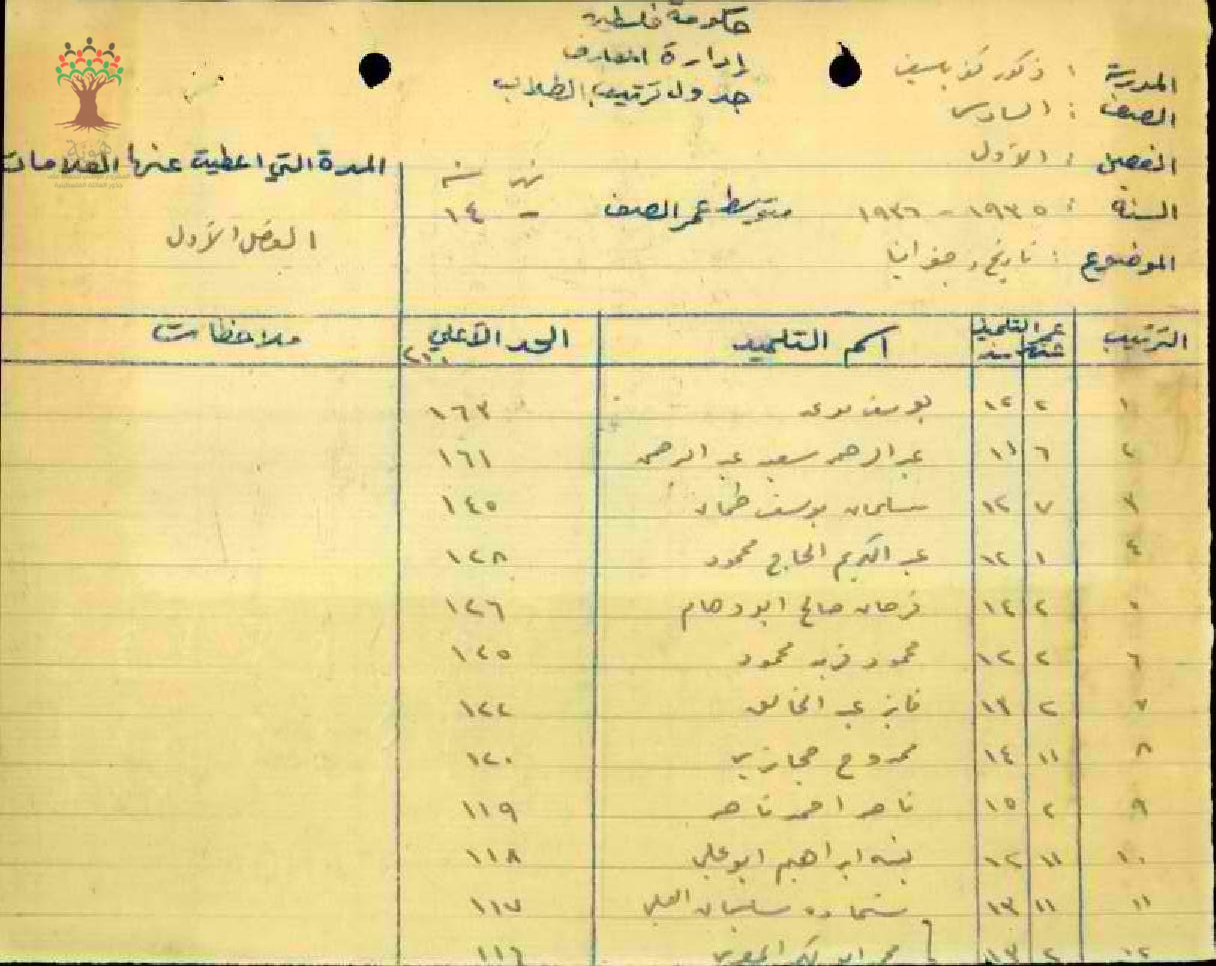 حكومة فلسطين
إدارة المعارف
جدول ترتيب الطلاب
المدرسة : ذكور كفر ياسيف
الصف : السادس
الفصل : الأول
السنة : ١٩٣٥ - ١٩٣٦
الموضوع : تاريخ وجغرافيا
متوسط عمر الصف
شهر سنة
- ١٤
المدة التي اعطيت عنها العلامات
الفصل الأول
الترتيب عمر التلميذ شهر سنة اسم التلميذ الحد الأعلى ٢٠٠ ملاحظات
١ ٢ ١٢ يوسف ١٦٣
٢ ٦ ١١ عبد الرحمن سعيد عبد الرحمن ١٦١
٣ ٧ ١٢ سليمان يوسف ١٤٥
٤ ١ ١٢ عبد الكريم الحاج محمود ١٢٨
٥ ٢ ١٢ فرحان صالح ابو دهام ١٢٦
٦ ٢ ١٢ محمود فريد محمود ١٢٥
٧ ٢ ١٣ فايز عبد الخالق ١٢٢
٨ ١١ ١٤ ممدوح حجازي ١٢٠
٩ ٢ ١٥ ناصر احمد ناصر ١١٩
١٠ ١١ ١٢ ابراهيم ابو علي ١١٨
١١ ١١ ١٣ شحاده سليمان العلي ١١٧
١٢ ٢ ١٣ محمد ١١٦